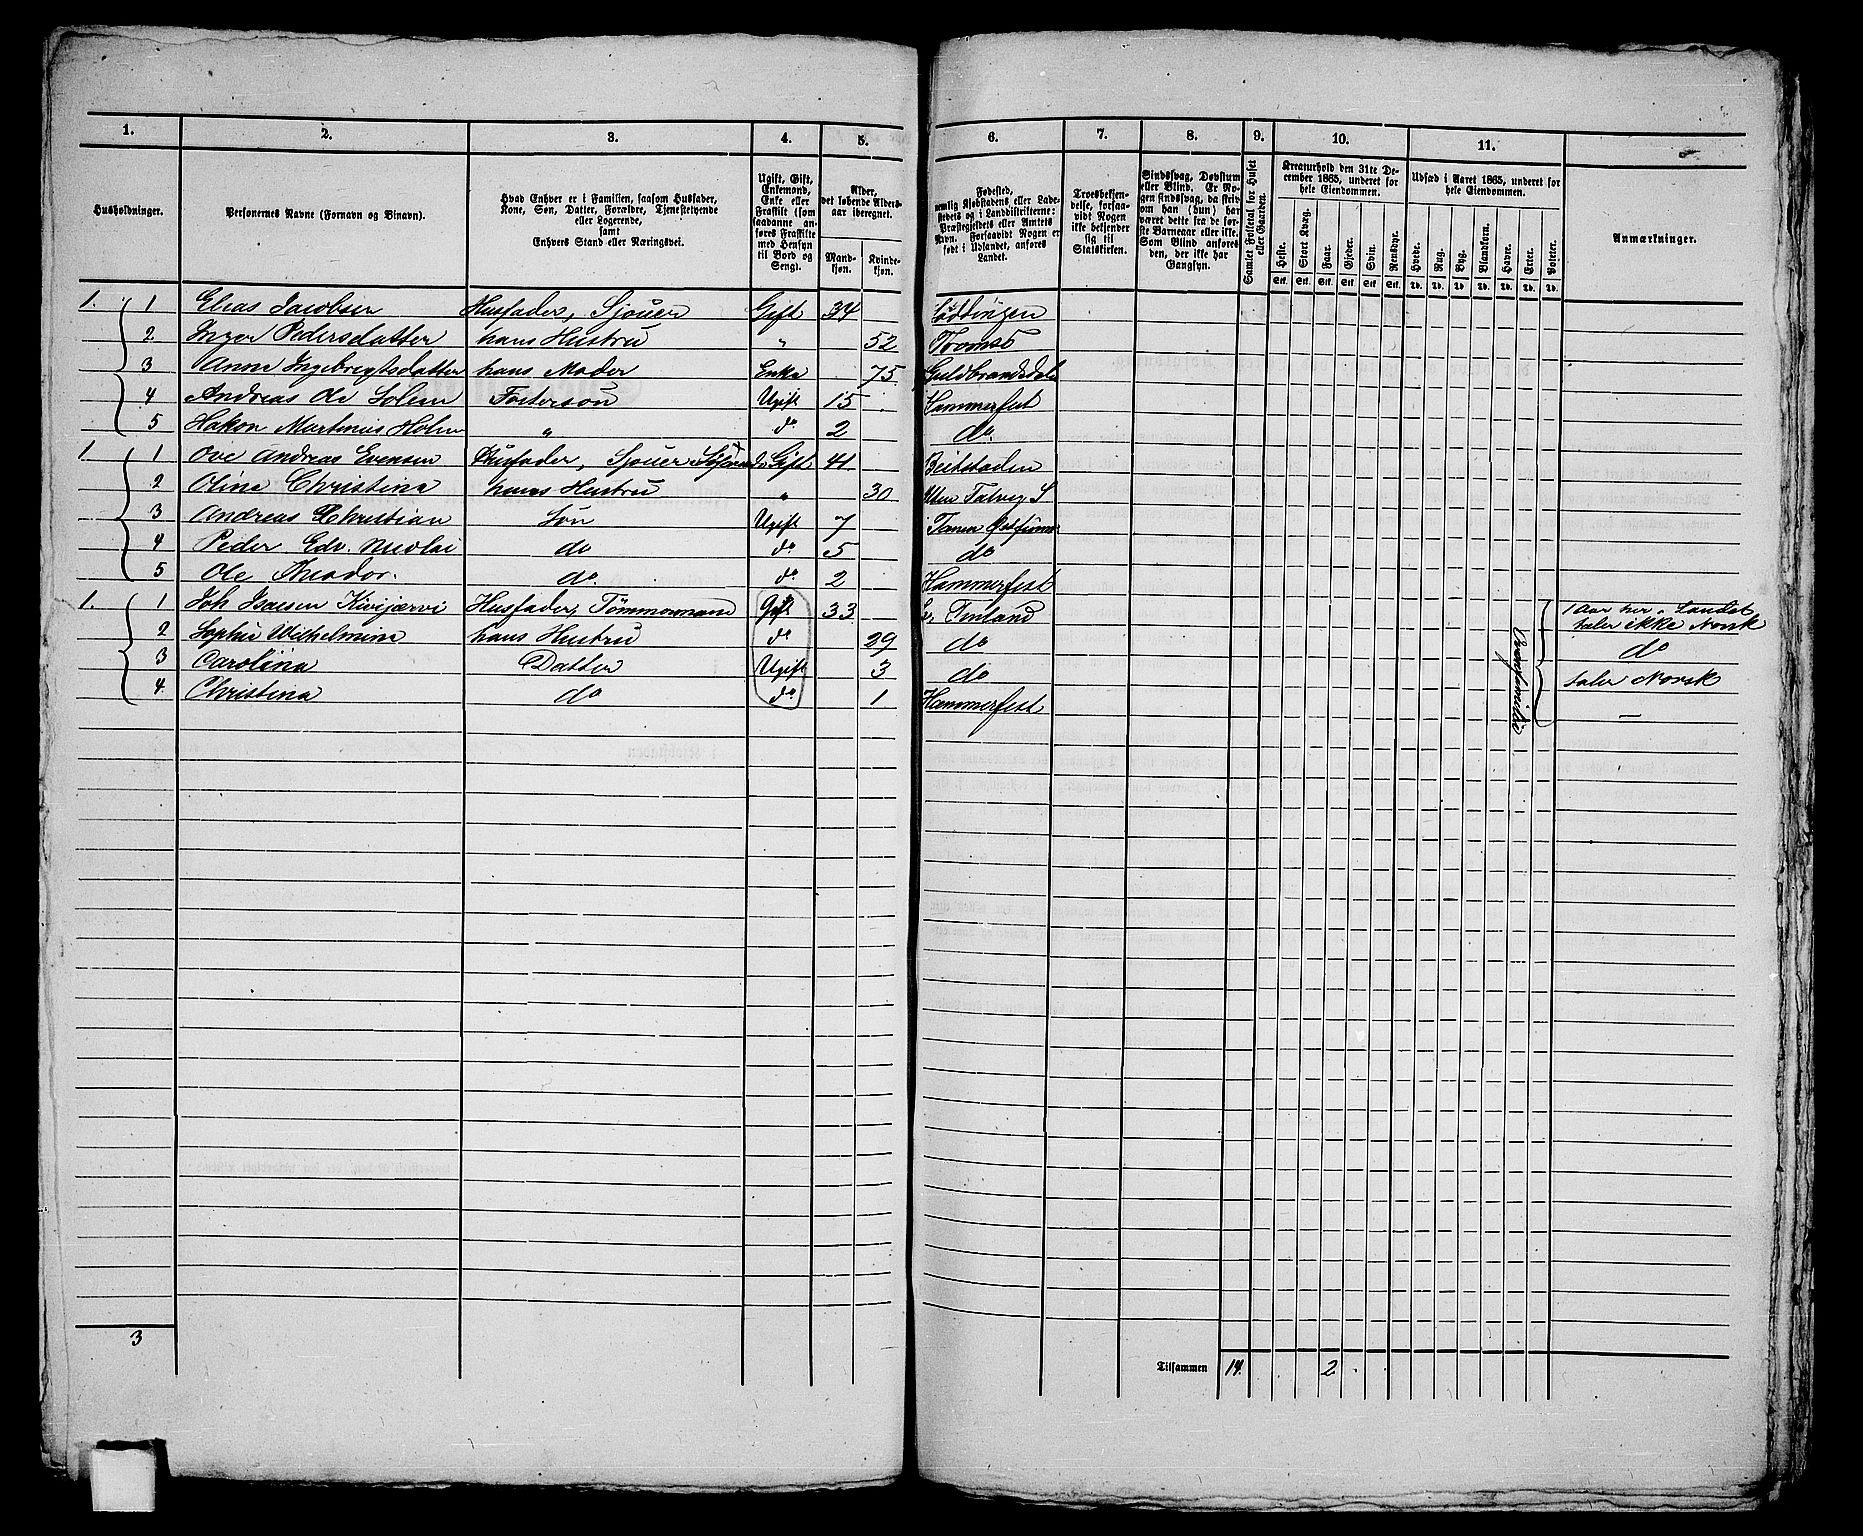 1. 2. 3. 4. 5. 6. 7. 8. 9. 10. 11.
Husholdninger.
Personernes Navne (Fornavn og Binavn).
Hvad Enhver er i Familien, saasom Husfader,
Kone, Søn, Datter, Forældre, Tjenestetyende
eller Logerende,
samt
Enhvers Stand eller Næringsvei.
Ugift, Gift,
Enkemand,
Enke eller
Fraskilt (som
saadanne an-
føres Fraskilte
med Hensyn
til Bord og
Seng).
Alder,
det løbende Alders-
aar iberegnet.
Mand-
kjøn.
Kvinde-
kjøn.
Fødested,
nemlig Kjøbstadens eller Lade-
stedets og i Landdistrikterne:
Præstegjeldets eller Amtets
Navn. Forsaavidt Nogen er
født i Udlandet, anføres
Landet.
Troesbekjen-
delse, forsaa-
vidt Nogen
ikke bekjender
sig til
Statskirken.
Sindssvag, Døvstum
eller Blind. Er No-
gen sindssvag, da skriv
om han (hun) har
været dette fra de før-
ste Barneaar eller ikke.
Som Blind anføres
den, der ikke har
Gangsyn.
Samlet Folketal for Huset
eller Gaarden.
Kreaturhold den 31te De-
cember 1865, underet for
hele Eiendommen.
Heste. Stort Kvæg. Faar. Gjeder. Svin. Rensdyr.
Stk. Stk. Stk. Stk. Stk. Stk.
Udsæd i Aaret 1865, underet for
hele Eiendommen.
Hvede. Rug. Byg. Blandkorn. Havre. Erter. Poteter.
Td. Td. Td. Td. Td. Td. Td.
Anmærkninger.
1. 1 Elias Jacobsen Husfader, Sjouer Gift 34 Lødingen
2 Inger Pedersdatter hans Hustru " 52 Tromsø
3 Anne Ingebregtsdatter hans Moder Enke 75 Guldbrandsdalen
4 Andreas Ole Solem Fostersøn Ugift 15 Hammerfest
5 Hakon Martinus Holm " do 2 do.
1. 1 Ove Andreas Evensen Husfader, Sjouer Gift 41 Beitstaden
2 Olina Christina hans Hustru " 30 Talvig
3 Andreas Christian Søn Ugift 7 Tanen
4 Peder Edv. Nicolai do do 5 do
5 Ole Theodor. do. do. 2 Hammerfest
1. 1 Joh Isacsen Kivijærvi Husfader, Tømmermand Gift 33 Finland 1 Aar her i Landet
taler ikke Norsk
2 Sophie Wilhelmina hans Hustru do 29 do do
3 Carolina Datter Ugift 3 do taler Norsk
4. Christina do do. 1 Hammerfest –
3
Tilsammen 14. 2